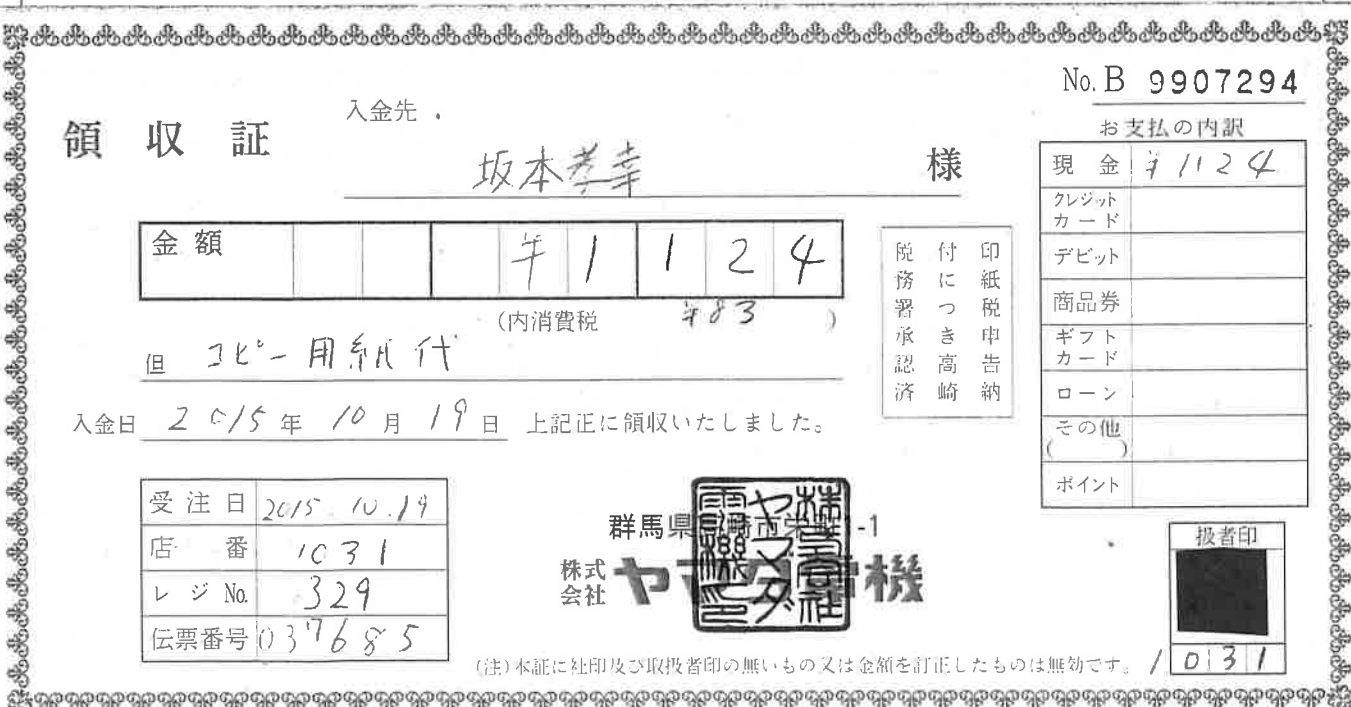 No. B 9907294
領収証
入金先
坂本孝幸 様
金額 ¥1124
(内消費税 ¥83 )
但 コピー用紙代
入金日 2015年 10月 19日 上記正に領収いたしました。
印紙税申告納
付につき高崎
税務署承認済
お支払の内訳
現金 ¥1124
クレジットカード
デビット
商品券
ギフトカード
ローン
その他
( )
ポイント
受注日 2015.10.19
店番 1031
レジNo. 329
伝票番号 037685
群馬県高崎市栄町1-1
株式会社 ヤマダ電機
株式会社
ヤマダ
電機之印
扱者印
1031
(注)本証に社印及び取扱者印の無いもの又は金額を訂正したものは無効です。